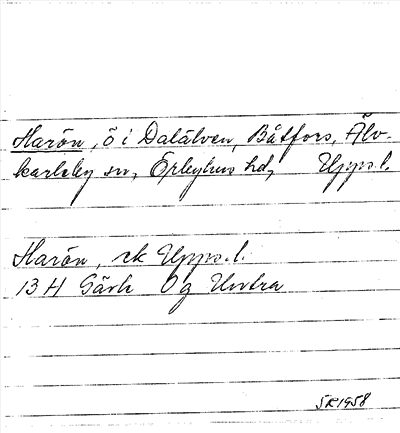 Harön, ö i Dalälven, Båtfors, Älv-
karleby sn, Örbyhus hd, Upps.l.
Harön, rk Upps.l.
13 H Gävle Og Untra
SR1958